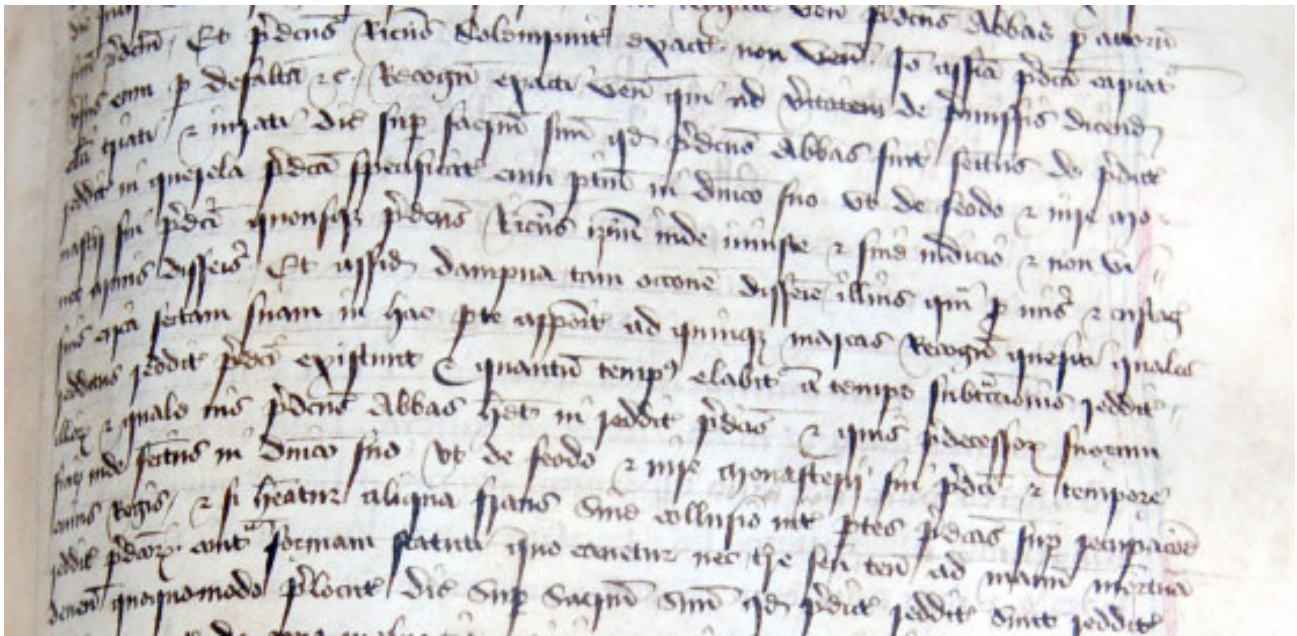 ven p̄dc̄us Abbas p attorn̄
p̄dc̄m Et p̄dc̄us Ric̄us Dolompint exact non ven̄ Io assīa p̄dc̄a capiat
eum p defaltā ⁊c Recogn̄ exacti ven̄ qui ad v̄itatem de p̄missis dicend
triati ⁊ iurati dic̄ sup sacr̄m suū qd p̄dc̄us Abbas fuit sēitus de p̄dict
reddit in querela p̄dc̄a specificat cum ptin̄ in dn̄ico suo ut de feodo ⁊ iure mo
nasterij sui p̄dc̄i quousq̨ p̄dc̄us Ric̄us ip̄m inde iniuste ⁊ sine iudicio ⁊ non vi
nec armis disseis̄ Et assid dampna tam occōne disseīe illius qm̄ p mis̄ ⁊ custag
suis circa sectam suam in hac pte apposit ad quinq̨ marcas Recogn̄ quesiti quales
redditus reddit p̄dc̄i existunt ⁊ quantū temp̨ elabit̄ a tempe subtraccionis reddit
illoꝝ ⁊ quale ius p̄dc̄us Abbas h̄et in reddit p̄dc̄is ⁊ quis p̄decessoꝝ suorum
fuit inde sēitus in dn̄ico suo ut de feodo ⁊ iure monasterij sui p̄dc̄i ⁊ tempore
cuius Regis ⁊ si h̄eatur aliqua fraus sive collusio int̄ ptes p̄dc̄as sup recupac̄oe
reddit p̄dc̄oꝝ cont̄ formam statuti quo cavetur ne t̄re seu ten̄ ad manū mortuā
deven̄ quoquomodo p̄locut dic̄ sup sacr̄m suū qd p̄dict reddit sunt reddit